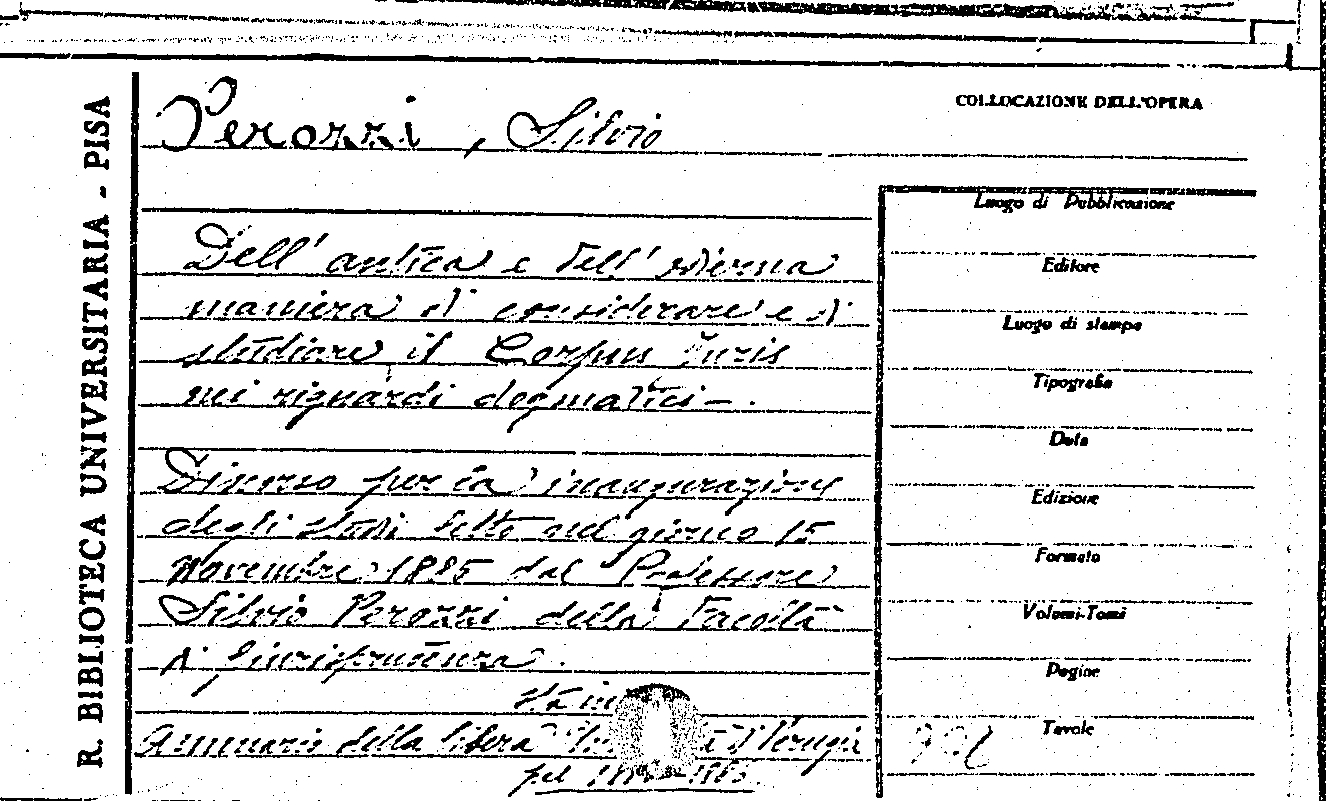 R. BIBLIOTECA UNIVERSITARIA - PISA
Perozzi, Silvio
COLLOCAZIONE DELL'OPERA
Dell'antica e dell'odierna
maniera di considerare e di
studiare il Corpus Juris
nei riguardi dogmatici - .
Discorso per la inaugurazione
degli studi letto nel giorno 15
Novembre 1885 dal Professore
Silvio Perozzi della Facoltà
di Giurisprudenza.
sta in
Annuario della libera d'Perugia
pel
Luogo di Pubblicazione
Editore
Luogo di stampa
Tipografia
Data
Edizione
Formato
Volumi-Tomi
Pagine
Tavole